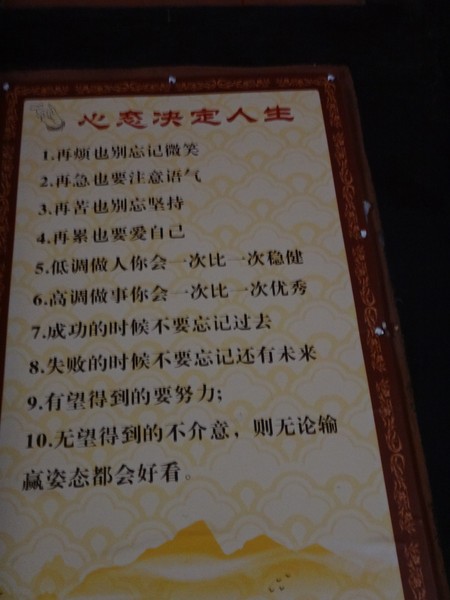 心态决定人生
1.再烦也别忘记微笑
2.再急也要注意语气
3.再苦也别忘坚持
4.再累也要爱自己
5.低调做人你会一次比一次稳健
6.高调做事你会一次比一次优秀
7.成功的时候不要忘记过去
8.失败的时候不要忘记还有未来
9.有望得到的要努力;
10.无望得到的不介意，则无论输
赢姿态都会好看。